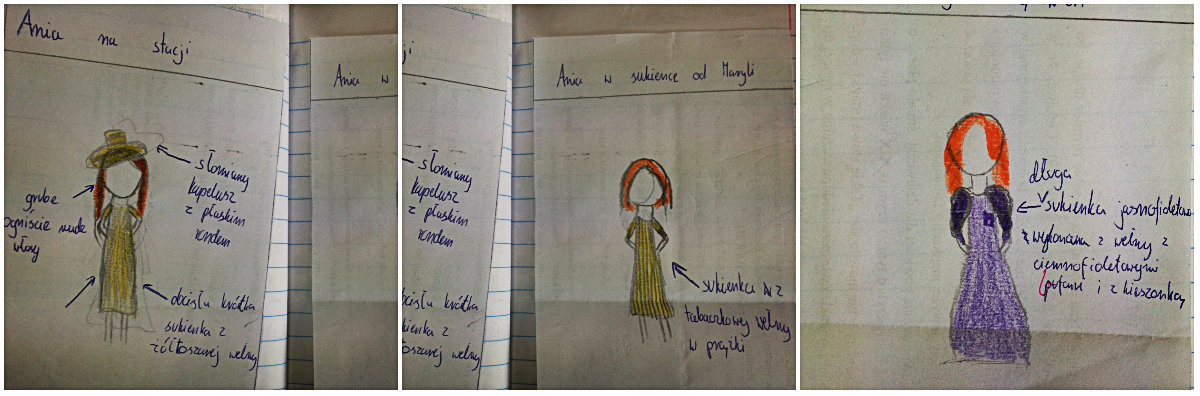 Ania na stacji
słomiany
kapelusz
z płaskim
rondem
grube
ogniście rude
włosy
obcisła krótka
sukienka z
żółtoszarej wełny
Ania w
ji
Ania w sukience od Maryli
słomiany
kapelusz
z płaskim
rondem
sukienka z
tabaczkowej wełny
w prążki
obcisła krótka
sukienka z
żółtoszarej wełny
długa
sukienka jasnofioletowa
wykonana z wełny z
ciemnofioletowymi
bufami i z kieszonką